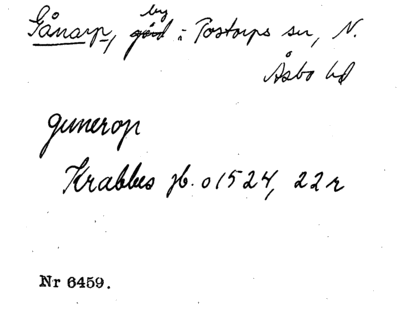 Gånarp, by i Tostarps sn, N.
Åsbo hd
gunerop
Krabbes jb. o 1524, 22 r
Nr 6459.